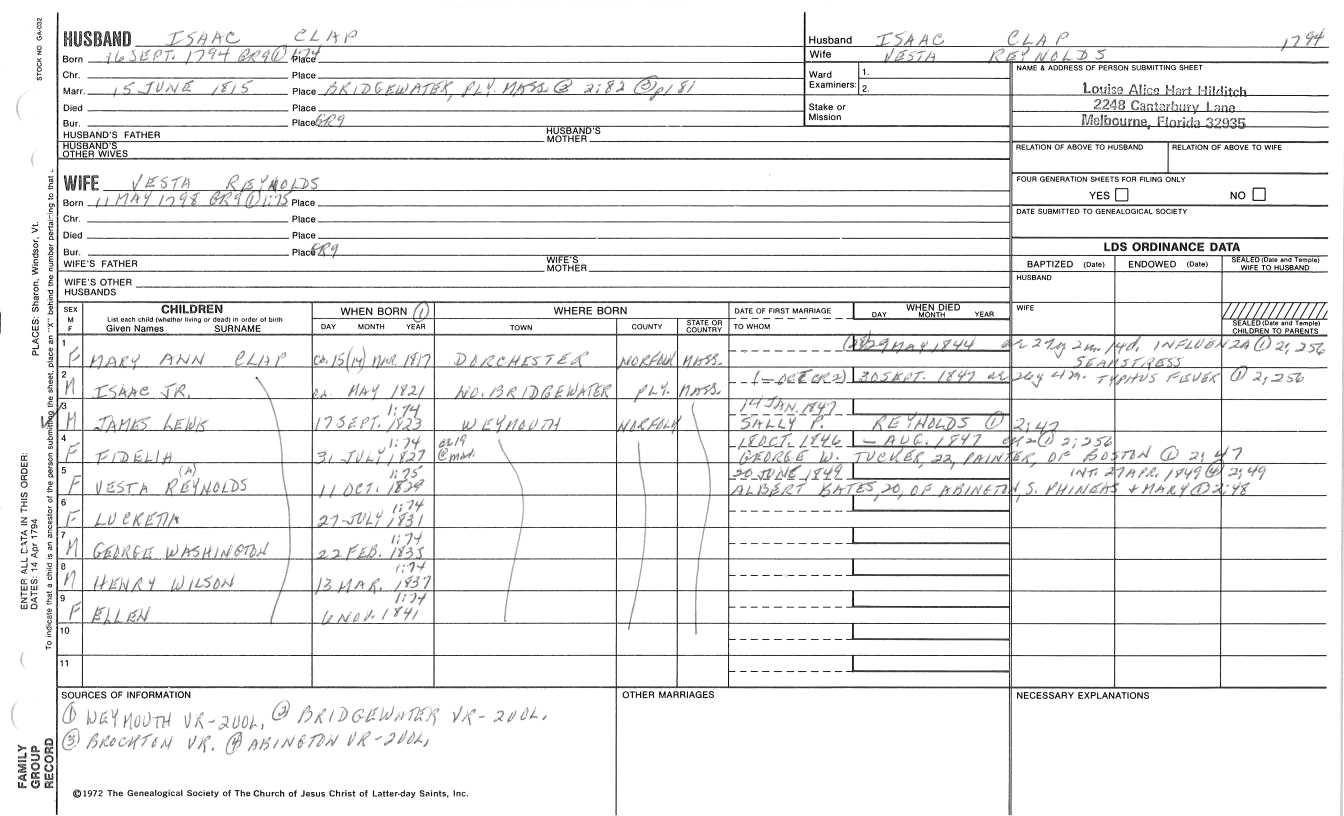 STOCK NO. GA-032
HUSBAND ISAAC CLAP
Born 16 SEPT. 1794 GR9 ① 1:74 Place
Chr. Place
Marr. 15 JUNE 1815 Place BRIDGEWATER, PLY. MASS. ② 2:82 ③ p181
Died Place
Bur. Place GR9
HUSBAND'S FATHER HUSBAND'S MOTHER
HUSBAND'S OTHER WIVES
Husband ISAAC CLAP 1794
Wife VESTA REYNOLDS
Ward Examiners: 1. 2.
Stake or Mission
NAME & ADDRESS OF PERSON SUBMITTING SHEET
Louise Alice Hart Hilditch
2248 Canterbury Lane
Melbourne, Florida 32935
RELATION OF ABOVE TO HUSBAND RELATION OF ABOVE TO WIFE
FOUR GENERATION SHEETS FOR FILING ONLY
YES NO
DATE SUBMITTED TO GENEALOGICAL SOCIETY
WIFE VESTA REYNOLDS
Born 11 MAY 1798 GR9 ① 1:75 Place
Chr. Place
Died Place
Bur. Place GR9
WIFE'S FATHER WIFE'S MOTHER
WIFE'S OTHER HUSBANDS
LDS ORDINANCE DATA
BAPTIZED (Date) ENDOWED (Date) SEALED (Date and Temple) WIFE TO HUSBAND
HUSBAND
WIFE
SEALED (Date and Temple) CHILDREN TO PARENTS
SEX M F
CHILDREN
List each child (whether living or dead) in order of birth
Given Names SURNAME
WHEN BORN ①
DAY MONTH YEAR
WHERE BORN
TOWN COUNTY STATE OR COUNTRY
DATE OF FIRST MARRIAGE
TO WHOM
WHEN DIED
DAY MONTH YEAR
1 F MARY ANN CLAP ca. 15 (14) MAR. 1817 DORCHESTER NORFOLK MASS. (28) 29 MAY 1844 ae 27y 2m. 14d. INFLUENZA ① 2:256
SEAMSTRESS
2 M ISAAC JR. ca. MAY 1821 NO. BRIDGEWATER PLY. MASS. (— OCT ② 2) 30 SEPT. 1847 ae 26y 4m. TYPHUS FEVER ① 2:256
3 M JAMES LEWIS 1:74 17 SEPT. 1823 WEYMOUTH NORFOLK 14 JAN. 1847
SALLY P. REYNOLDS ① 2:47
4 F FIDELIA 1:74 31 JULY 1827 ae 19 @ mar. 18 OCT. 1846 — AUG. 1847 ae 20 ① 2:256
GEORGE W. TUCKER, 22, PAINTER, OF BOSTON ① 2:47
5 F VESTA REYNOLDS (A) 1:75 11 OCT. 1829 20 JUNE 1849 INT. 27 APR. 1849 ④ 2:49
ALBERT BATES, 20, OF ABINGTON, S. PHINEAS & MARY ① 2:48
6 F LUCRETIA 1:74 27 JULY 1831
7 M GEORGE WASHINGTON 1:74 22 FEB. 1835
8 M HENRY WILSON 1:74 13 MAR. 1837
9 F ELLEN 1:74 6 NOV. 1841
10
11
SOURCES OF INFORMATION
① WEYMOUTH VR-2VOL, ② BRIDGEWATER VR-2VOL.
③ BROCKTON VR. ④ ABINGTON VR-2VOL,
OTHER MARRIAGES
NECESSARY EXPLANATIONS
©1972 The Genealogical Society of The Church of Jesus Christ of Latter-day Saints, Inc.
FAMILY GROUP RECORD
ENTER ALL DATA IN THIS ORDER:
DATES: 14 Apr 1794
PLACES: Sharon, Windsor, Vt.
To indicate that a child is an ancestor of the person submitting the sheet, place an "X" behind the number pertaining to that